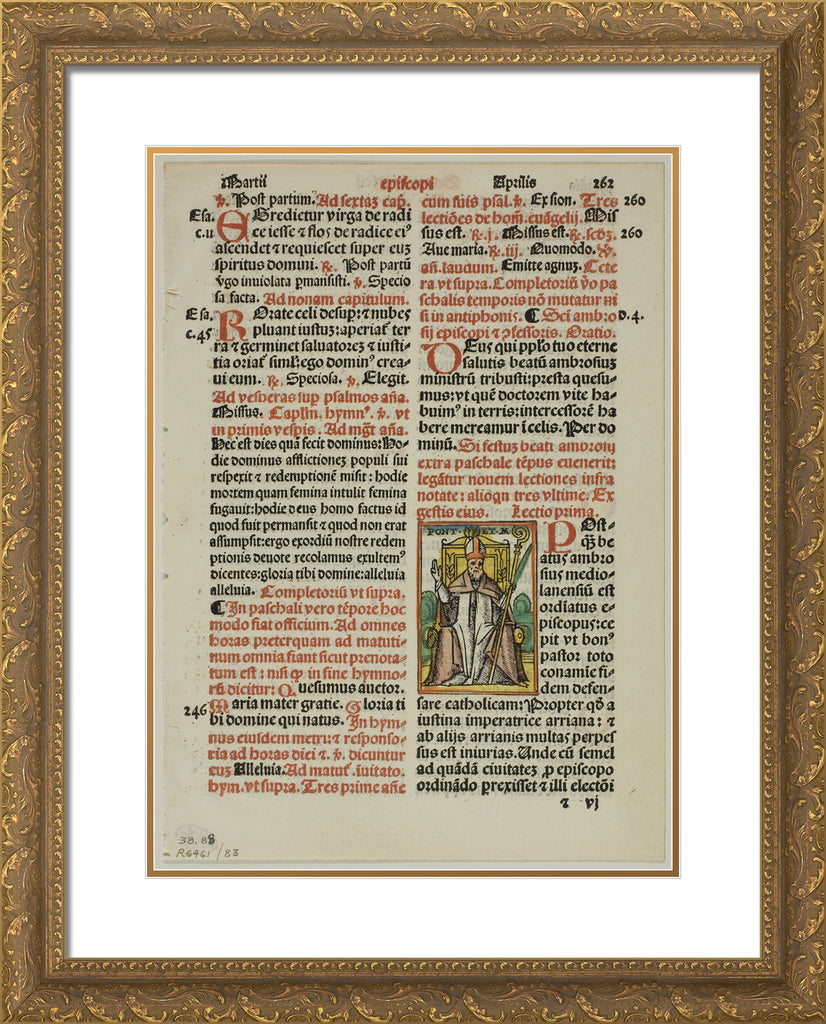 Martii episcopi Aprilis 262
℣. Post partum. Ad sextaȝ cap̄.
Esa. EGredietur virga de radi
c.11 ce iesse ⁊ flos de radice eiꝰ
ascendet ⁊ requiescet super euȝ
spiritus domini. ℟. Post partū
v̄go inuiolata ꝑmansisti. ℣. Specio
sa facta. Ad nonam capitulum.
Esa. ROrate celi desuꝑ: ⁊ nubes
c.45 pluant iustuȝ: aperiat̄ ter
ra ⁊ germinet saluatoreȝ ⁊ iusti-
tia oriat̄ siml̓: ego dominꝰ crea-
ui eum. ℟. Speciosa. ℣. Elegit.
Ad vesperas suꝑ psalmos aña.
Missus. Capl̓m. hymnꝰ. ℣. vt
in primis vesꝑis. Ad mḡt aña.
Hec est dies quā fecit dominus: Ho-
die dominus afflictioneȝ populi sui
respexit ⁊ redemptionē misit: hodie
mortem quam femina intulit femina
fugauit: hodie deus homo factus id
quod fuit permansit ⁊ quod non erat
assumpsit: ergo exordiū nostre redem
ptionis deuote recolamus exultemꝰ
dicentes: gloria tibi domine: alleluia
alleluia. Completoriū vt supra.
¶ In paschali vero tēpore hoc
modo fiat officium. Ad omnes
horas preterquam ad matuti-
num omnia fiant sicut prenota-
tum est: nisi ꝙ in fine hymno-
rū dicitur: Quesumus auctor.
246 Maria mater gratie. Gloria ti
bi domine qui natus. In hym-
nus eiusdem metri: ⁊ responso-
ria ad horas diei ⁊ ℣. dicuntur
cuȝ Alleluia. Ad matuṫ. īuitato.
hym. vt supra. Tres prime añe
cum suis psal. ℣. Ex sion. Tres 260
lectiōes de hom̄. euāgelij. Mis
sus est. ℟. j. Missus est. ℟. scōȝ. 260
Aue maria. ℟. iij. Quomōdo. ℣.
añ. laudum. Emitte agnuȝ. Cete
ra vt supra. Completoriū v̓o pa
schalis temporis nō mutatur ni
si in antiphonis. ¶ Scī ambro D.4.
sij episcopi ⁊ ꝯfessoris. Oratio.
DEus qui ppl̓o tuo eterne
salutis beatū ambrosiuȝ
ministrū tribuisti: presta quesu-
mus: vt quē doctorem vite ha-
buimꝰ in terris: intercessorē ha
bere mereamur ī celis. Per do
minū. Si festuȝ beati ambrosij
extra paschale tēpus euenerit:
legātur nouem lectiones infra
notate: alioqn̄ tres vltime. Ex
gestis eius. Lectio prima.
PONT. ET. M
POst-
ꝙȝ be
atꝰ ambro
sius medio-
lanensiū est
ordīatus e-
piscopus: ce
pit vt bonꝰ
pastor toto
conamie fi-
dem defen-
sare catholicam: Propter qđ a
iustina imperatrice arriana: ⁊
ab alijs arrianis multas perpes
sus est iniurias. Unde cū semel
ad quādā ciuitateȝ ꝓ episcopo
ordinādo ꝑrexisset ⁊ illi electōi
⁊ vj
38.88
R6461/83